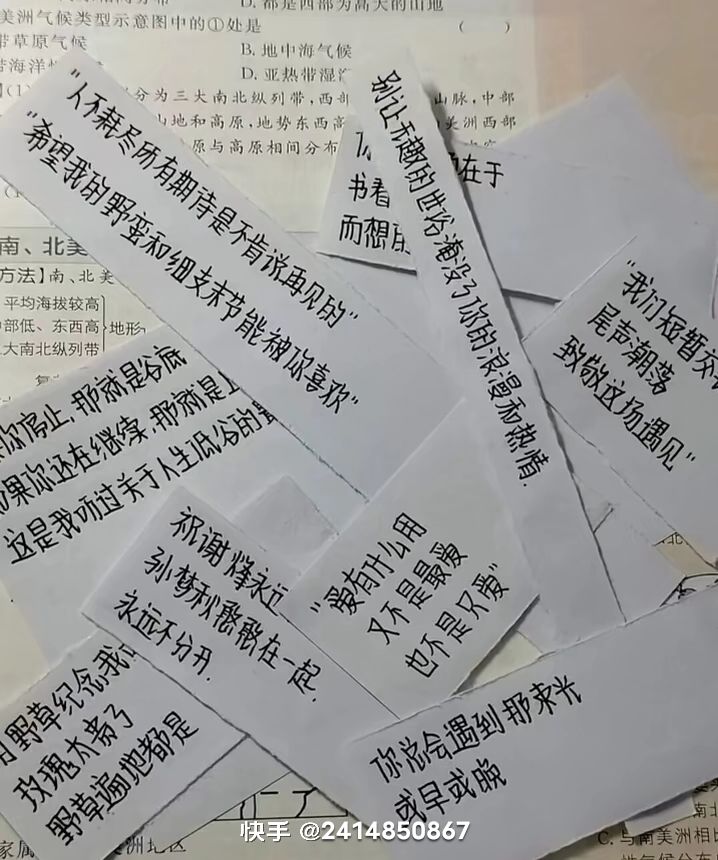 D. 都是西部为高大的山地
美洲气候类型示意图中的①处是
( )
带草原气候
B. 地中海气候
带海洋性
D. 亚热带湿
分为三大南北纵列带，西部
山脉，中部
山地和高原，地势东西高
美洲西部
原与高原相间分布
南、北美
方法】南、北美
平均海拔较高
中部低、东西高
地形
大南北纵列带
"人不耗尽所有期待是不肯说再见的"
"希望我的野蛮和细支末节能被你喜欢"
别让无趣的世俗淹没了你的浪漫和热情.
你
在于
书看
而想
"我们短暂交
尾声潮落
致敬这场遇见"
你停止,那就是谷底
如果你还在继续 那就是上
这是我听过关于人生低谷的
祝谢烽永远
孙梦秋憨憨在一起.
永远不分开.
"爱有什么用
又不是最爱
也不是只爱"
用野草纪念我
玫瑰太贵了
野草遍地都是
你总会遇到那束光
或早或晚
快手 @2414850867
家属
美洲地区
C. 与南美洲相比